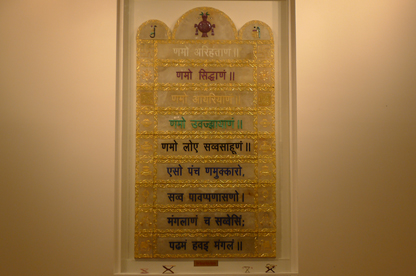 णमो अरिहंताणं॥
णमो सिद्धाणं॥
णमो आयरियाणं॥
णमो उवज्झायाणं॥
णमो लोए सव्वसाहूणं॥
एसो पंच णमुक्कारो,
सव्व पावप्पणासणो।
मंगलाणं च सव्वेसिं;
पढमं हवइ मंगलं॥